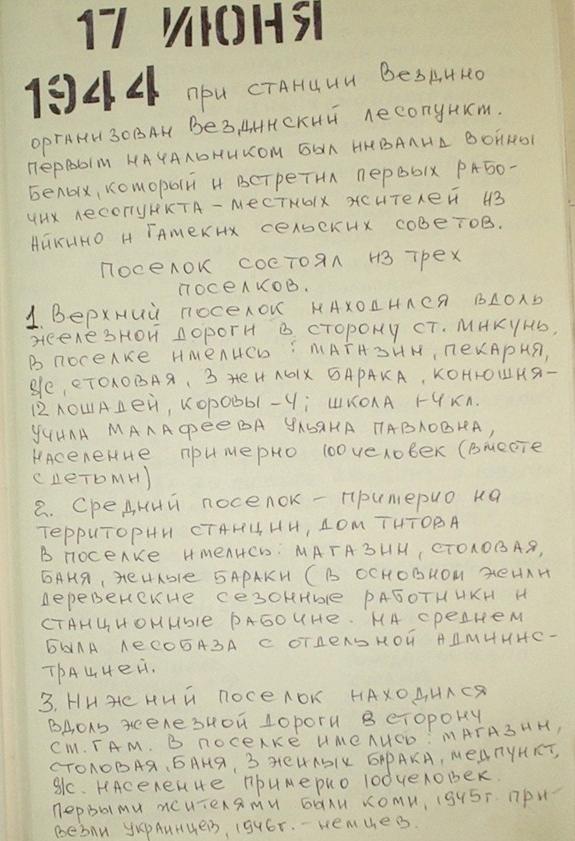 17 ИЮНЯ
1944 при станции Вездино
организован Вездинский лесопункт.
первым начальником был инвалид войны
Белых, который и встретил первых рабо-
чих лесопункта - местных жителей из
Айкино и Гамских сельских советов.
Поселок состоял из трех
поселков.
1. Верхний поселок находился вдоль
железной дороги в сторону ст. Микунь.
В поселке имелись: магазин, пекарня,
д/с, столовая, 3 жилых барака, конюшня-
12 лошадей, коровы - 4; школа 1-4 кл.
учила Малафеева Ульяна Павловна,
население примерно 100 человек (вместе
с детьми)
2. Средний поселок - примерно на
территории станции, дом Титова
В поселке имелись: магазин, столовая,
баня, жилые бараки (в основном жили
деревенские сезонные работники и
станционные рабочие. На среднем
была лесобаза с отдельной админис-
трацией.
3. Нижний поселок находился
вдоль железной дороги в сторону
ст. Гам. В поселке имелись: магазин,
столовая, баня, 3 жилых барака, медпункт,
д/с. население примерно 100 человек.
Первыми жителями были коми, 1945г. при-
везли украинцев, 1946г. - немцев.